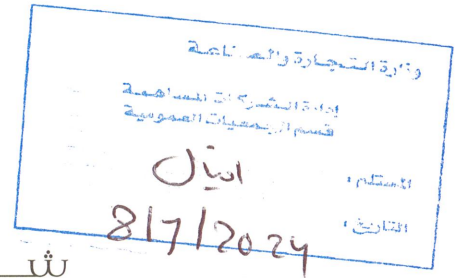 وزارة التجارة والصناعة
إدارة الشركات المساهمة
قسم الجمعيات العمومية
المستلم :
التاريخ : 8/7/2024
ش